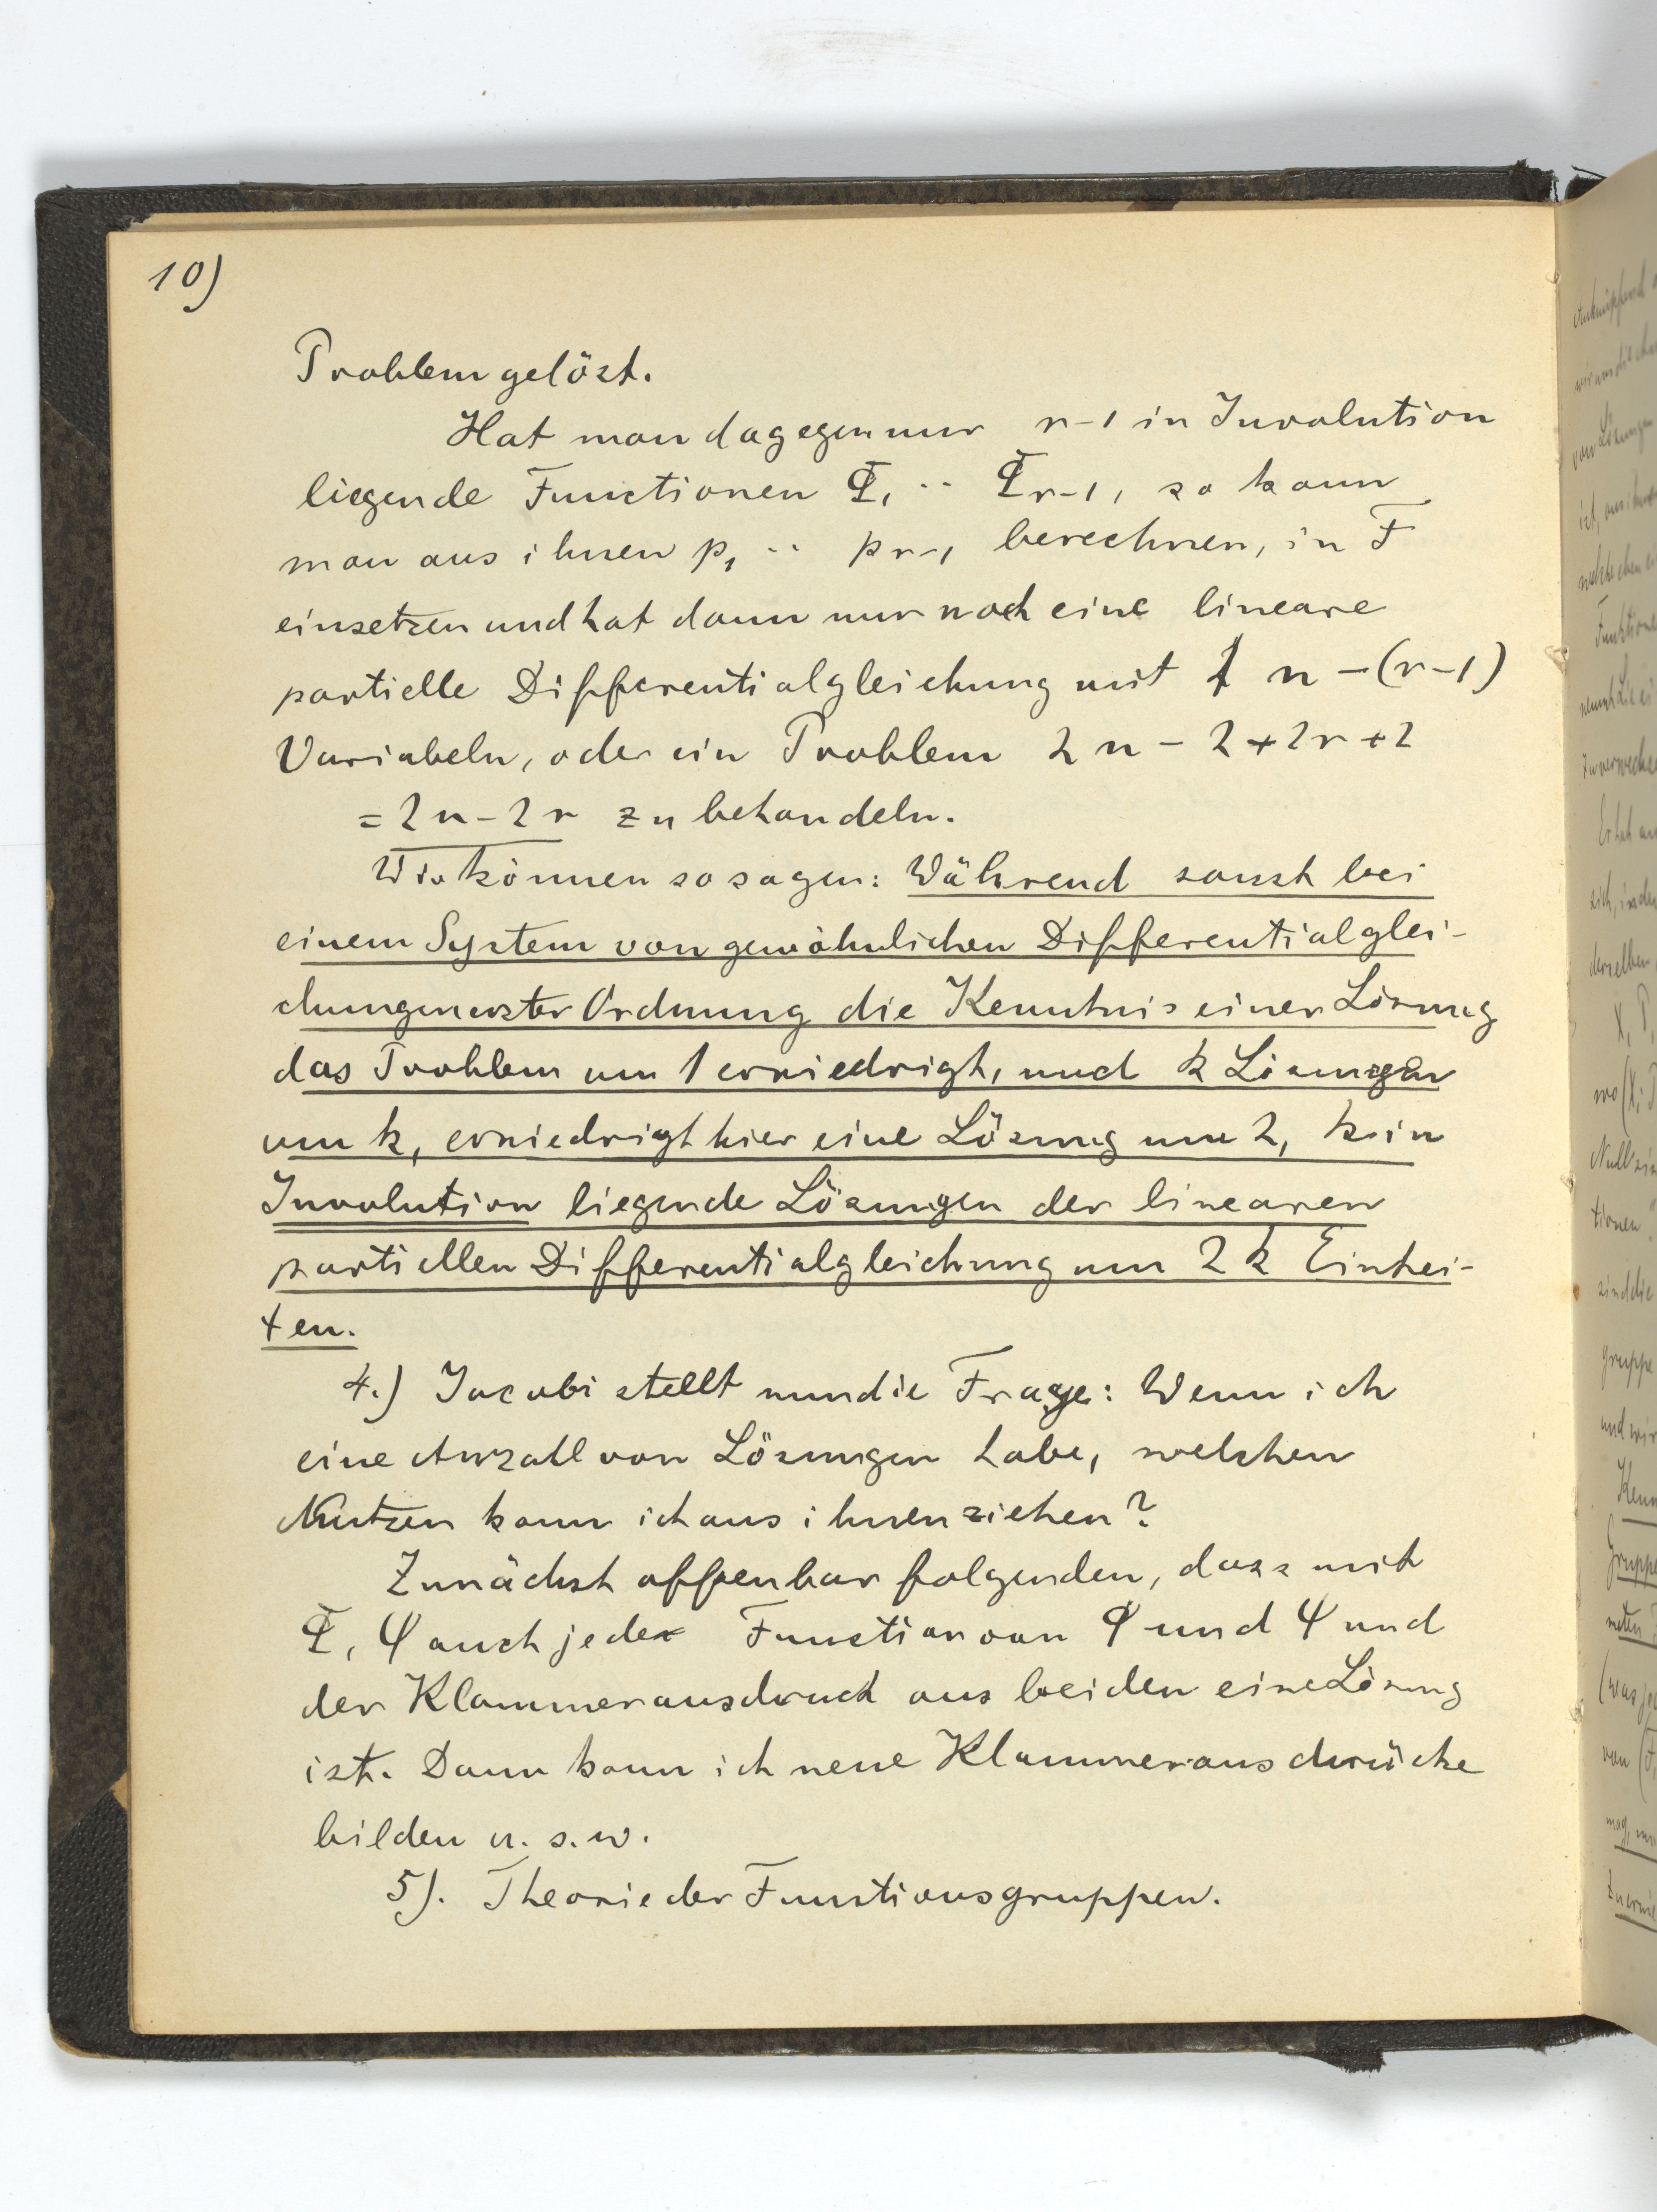 10)
Problem gelöst.
Hat man dagegen nur r-1 in Involution
liegende Functionen Φ₁ ·· Φr-1, so kann
man aus ihnen p₁ ·· pr-1 berechnen, in F
einsetzen und hat dann nur noch eine lineare
partielle Differentialgleichung mit n-(r-1)
Variabeln, oder ein Problem 2n-2+2r+2
=2n-2r zu behandeln.
Wir können so sagen: Während sonst bei
einem System von gewöhnlichen Differentialglei-
chungen erster Ordnung die Kenntnis einer Lösung
das Problem um 1 erniedrigt, und k Lösungen
um k, erniedrigt hier eine Lösung um 2, k in
Involution liegende Lösungen der linearen
partiellen Differentialgleichung um 2k Einhei-
ten.
4.) Jacobi stellt nun die Frage: Wenn ich
eine Anzahl von Lösungen habe, welchen
Nutzen kann ich aus ihnen ziehen?
Zunächst offenbar folgenden, dass mit
Φ, Ψ auch jede Function von φ und ψ und
der Klammerausdruck aus beiden eine Lösung
ist. Dann kann ich neue Klammerausdrücke
bilden u. s. w.
5). Theorie der Functionsgruppen.